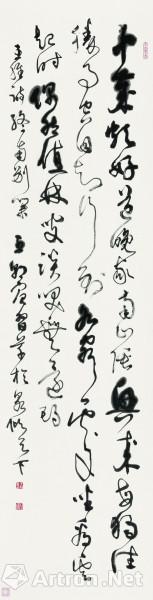 中歲頗好道晚家南山陲興來每獨往
勝事空自知行到水窮處坐看雲
起時偶然值林叟談笑無還期
王維詩終南別業
Artron.Net